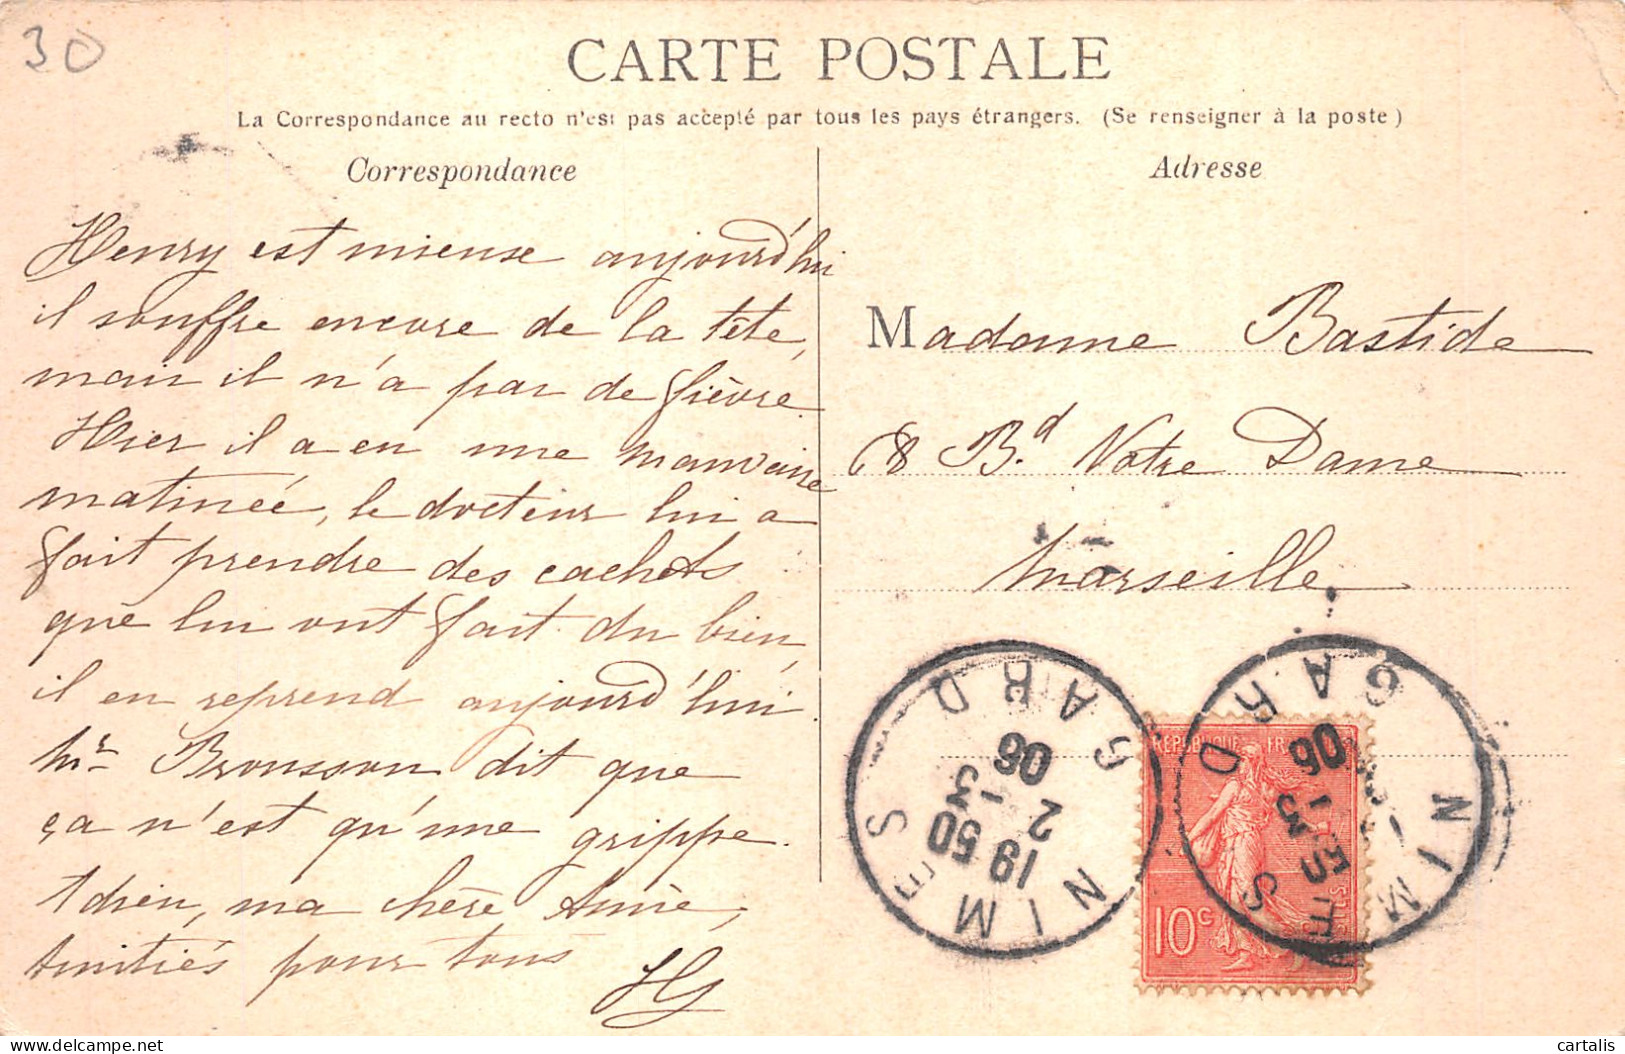 30
CARTE POSTALE
La Correspondance au recto n'est pas accepté par tous les pays étrangers. (Se renseigner à la poste)
Correspondance
Henry est mieux aujourd'hui
il souffre encore de la tête,
mais il n'a pas de fièvre.
Hier il a eu une mauvaise
matinée, le docteur lui a
fait prendre des cachets
que lui ont fait du bien,
il en reprend aujourd'hui.
Mr Bronsson dit que
ça n'est qu'une grippe.
Adieu, ma chère Amie,
Amitiés pour tous
HG
Adresse
Madame Bastide
68 Bd. Notre Dame
Marseille
NIMES
GARD
19 50
2 - 3
06
REPUBLIQUE FR
10c
NIMES
GARD
3
06
cartalis
delcampe.net